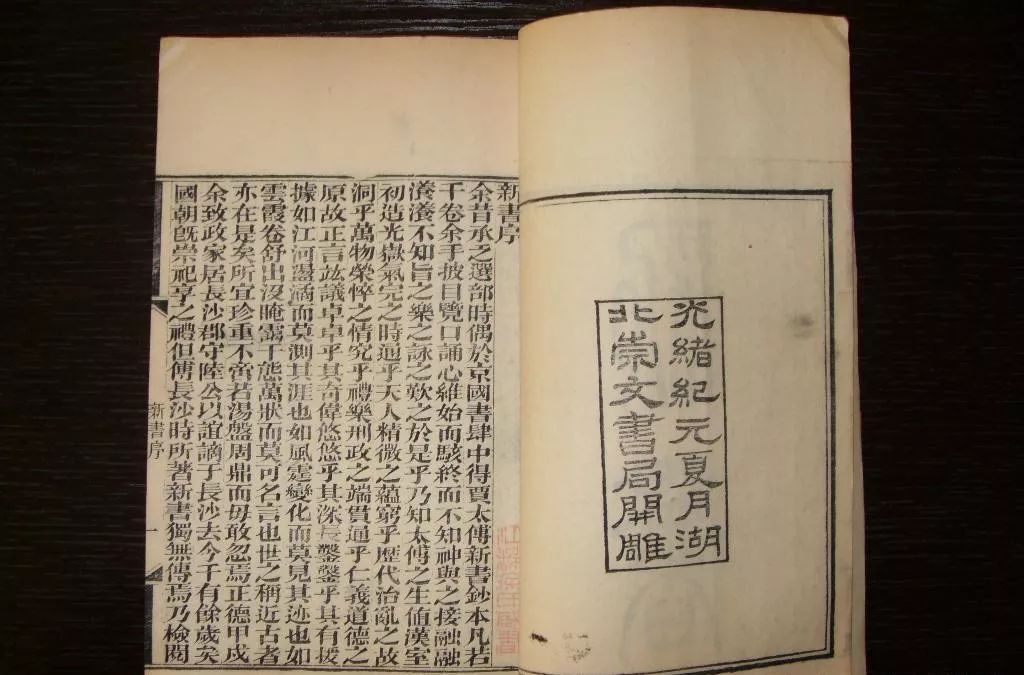 光緒紀元夏月湖
北崇文書局開雕
新書序
余昔承之選部時偶於京國書肆中得賈太傅新書鈔本凡若
千卷余手披目覽口誦心維始而駭終而不知神與之接融融
瀁瀁不知旨之樂之詠之歎之於是乎乃知太傅之生值漢室
初造光嶽氣完之時通乎天人精微之蘊窮乎歷代治亂之故
洞乎萬物榮悴之情究乎禮樂刑政之端貫通乎仁義道德之
原故正言竑議卓卓乎其奇偉悠悠乎其深長鑿鑿乎其有援
據如江河盪潏而莫測其涯也如風霆變化而莫見其迹也如
雲霞卷舒出沒晻靄千態萬狀而莫可名言也世之稱近古者
亦在是矣所宜珍重不啻若湯盤周鼎而毋敢忽焉正德甲戌
余致政家居長沙郡守陸公以誼謫于長沙去今千有餘歲矣
國朝旣崇祀享之禮但傅長沙時所著新書獨無傳焉乃檢閱
新書序 一